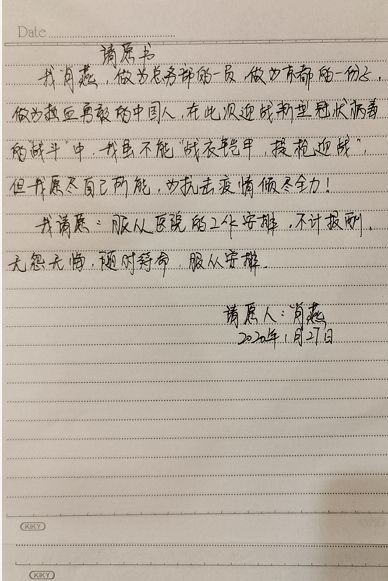 Date
请愿书
我肖燕,做为总务部的一员,做为市都的一份子,
做为热血勇敢的中国人,在此次迎战新型冠状病毒
的"战斗"中,我虽不能"战衣铠甲,提枪迎战",
但我愿尽自己所能,为抗击疫情倾尽全力!
我请愿:服从医院的工作安排,不计报酬,
无怨无悔,随时待命,服从安排。
请愿人:肖燕
2020年1月27日
KIKY
KIKY